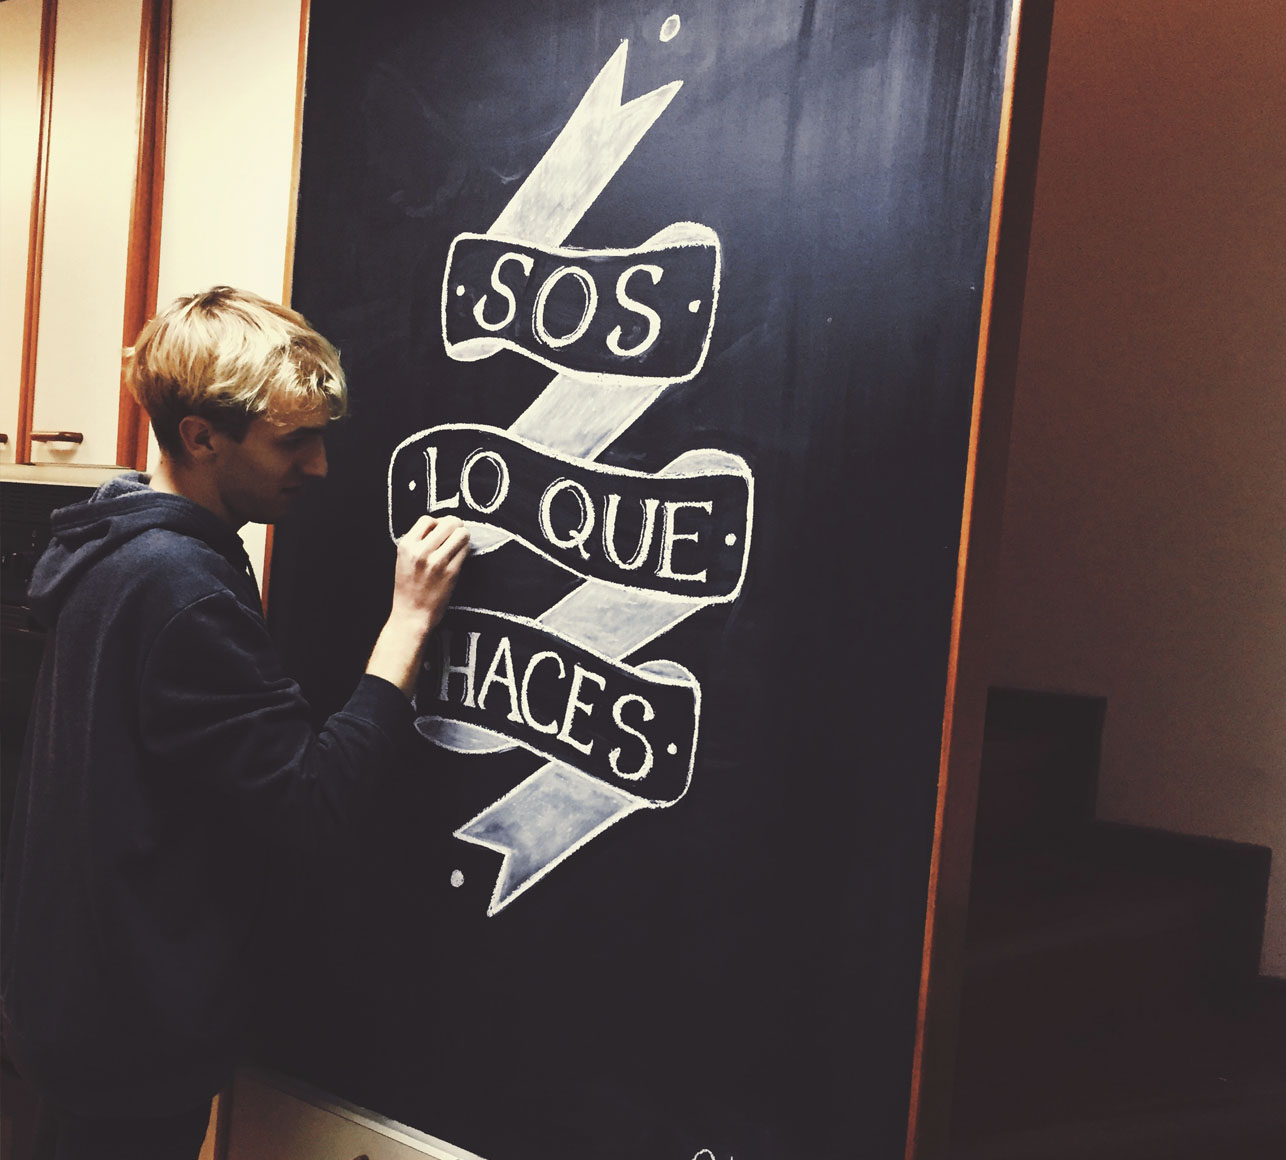 SOS
LO QUE
HACES